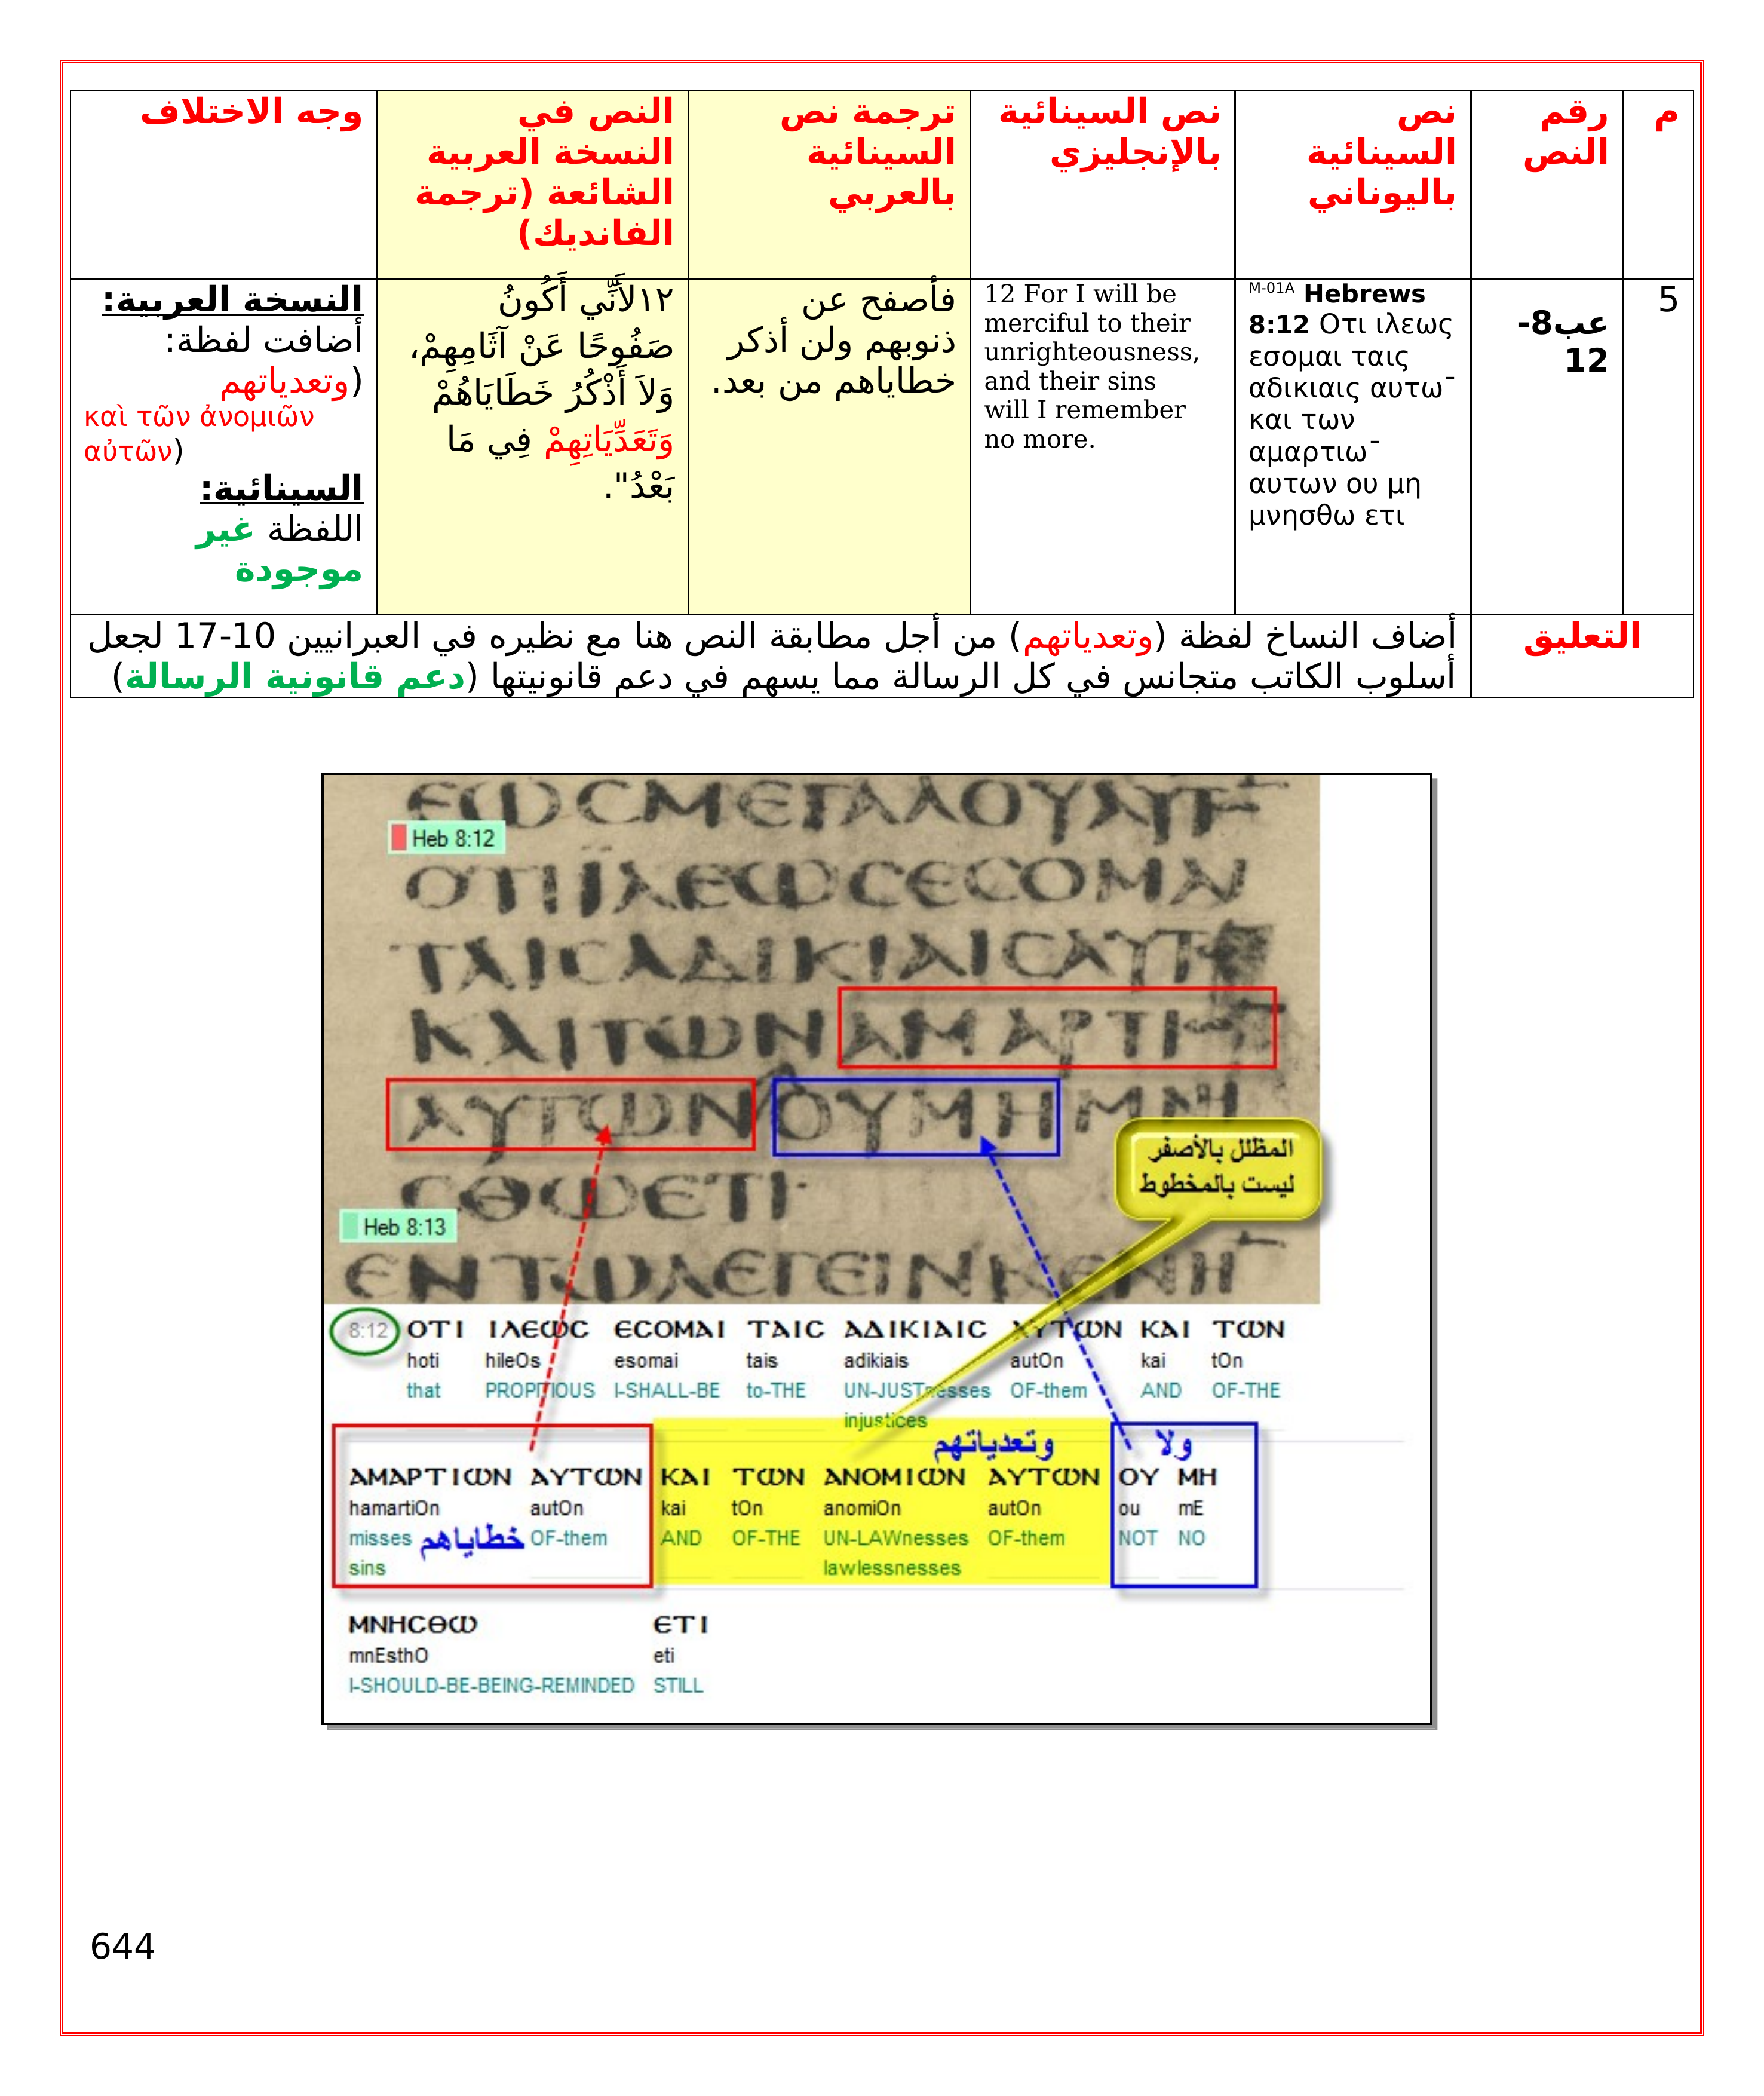 م
رقم
النص
نص
السينائية
باليوناني
نص السينائية
بالإنجليزي
ترجمة نص
السينائية
بالعربي
النص في
النسخة العربية
الشائعة (ترجمة
الفانديك)
وجه الاختلاف
5
عب8-
12
M-01A Hebrews
8:12 Οτι ιλεως
εσομαι ταις
αδικιαις αυτω¯
και των
αμαρτιω¯
αυτων ου μη
μνησθω ετι
12 For I will be
merciful to their
unrighteousness,
and their sins
will I remember
no more.
فأصفح عن
ذنوبهم ولن أذكر
خطاياهم من بعد.
١٢لأَنِّي أَكُونُ
صَفُوحًا عَنْ آثَامِهِمْ،
وَلاَ أَذْكُرُ خَطَايَاهُمْ
وَتَعَدِّيَاتِهِمْ فِي مَا
بَعْدُ".
النسخة العربية:
أضافت لفظة:
(وتعدياتهم
καὶ τῶν ἀνομιῶν
αὐτῶν)
السينائية:
اللفظة غير
موجودة
التعليق
أضاف النساخ لفظة (وتعدياتهم) من أجل مطابقة النص هنا مع نظيره في العبرانيين 10-17 لجعل
أسلوب الكاتب متجانس في كل الرسالة مما يسهم في دعم قانونيتها (دعم قانونية الرسالة)
ΕΩϹΜΕΓΑΛΟΥΑΥΤ
Heb 8:12
ΟΤΙΪΛΕΩϹΕϹΟΜΑΙ
ΤΑΙϹΑΔΙΚΙΑΙϹΑΥΤ
ΚΑΙΤΩΝΑΜΑΡΤΙ
ΑΥΤΩΝΟΥΜΗΜΝΗ
ϹΘΩΕΤΙ·
المظلل بالأصفر
ليست بالمخطوط
Heb 8:13
ΕΝΤΩΛΕΓΕΙΝΚΕΝΗ
8:12 ΟΤΙ ΙΛΕΩϹ ΕϹΟΜΑΙ ΤΑΙϹ ΑΔΙΚΙΑΙϹ ΑΥΤΩΝ ΚΑΙ ΤΩΝ
hoti hileOs esomai tais adikiais autOn kai tOn
that PROPITIOUS I-SHALL-BE to-THE UN-JUSTnesses OF-them AND OF-THE
injustices
وتعدياتهم ولا
ΑΜΑΡΤΙΩΝ ΑΥΤΩΝ ΚΑΙ ΤΩΝ ΑΝΟΜΙΩΝ ΑΥΤΩΝ ΟΥ ΜΗ
hamartiOn autOn kai tOn anomiOn autOn ou mE
misses خطاياهم OF-them AND OF-THE UN-LAWnesses OF-them NOT NO
sins lawlessnesses
ΜΝΗϹΘΩ ΕΤΙ
mnEsthO eti
I-SHOULD-BE-BEING-REMINDED STILL
644